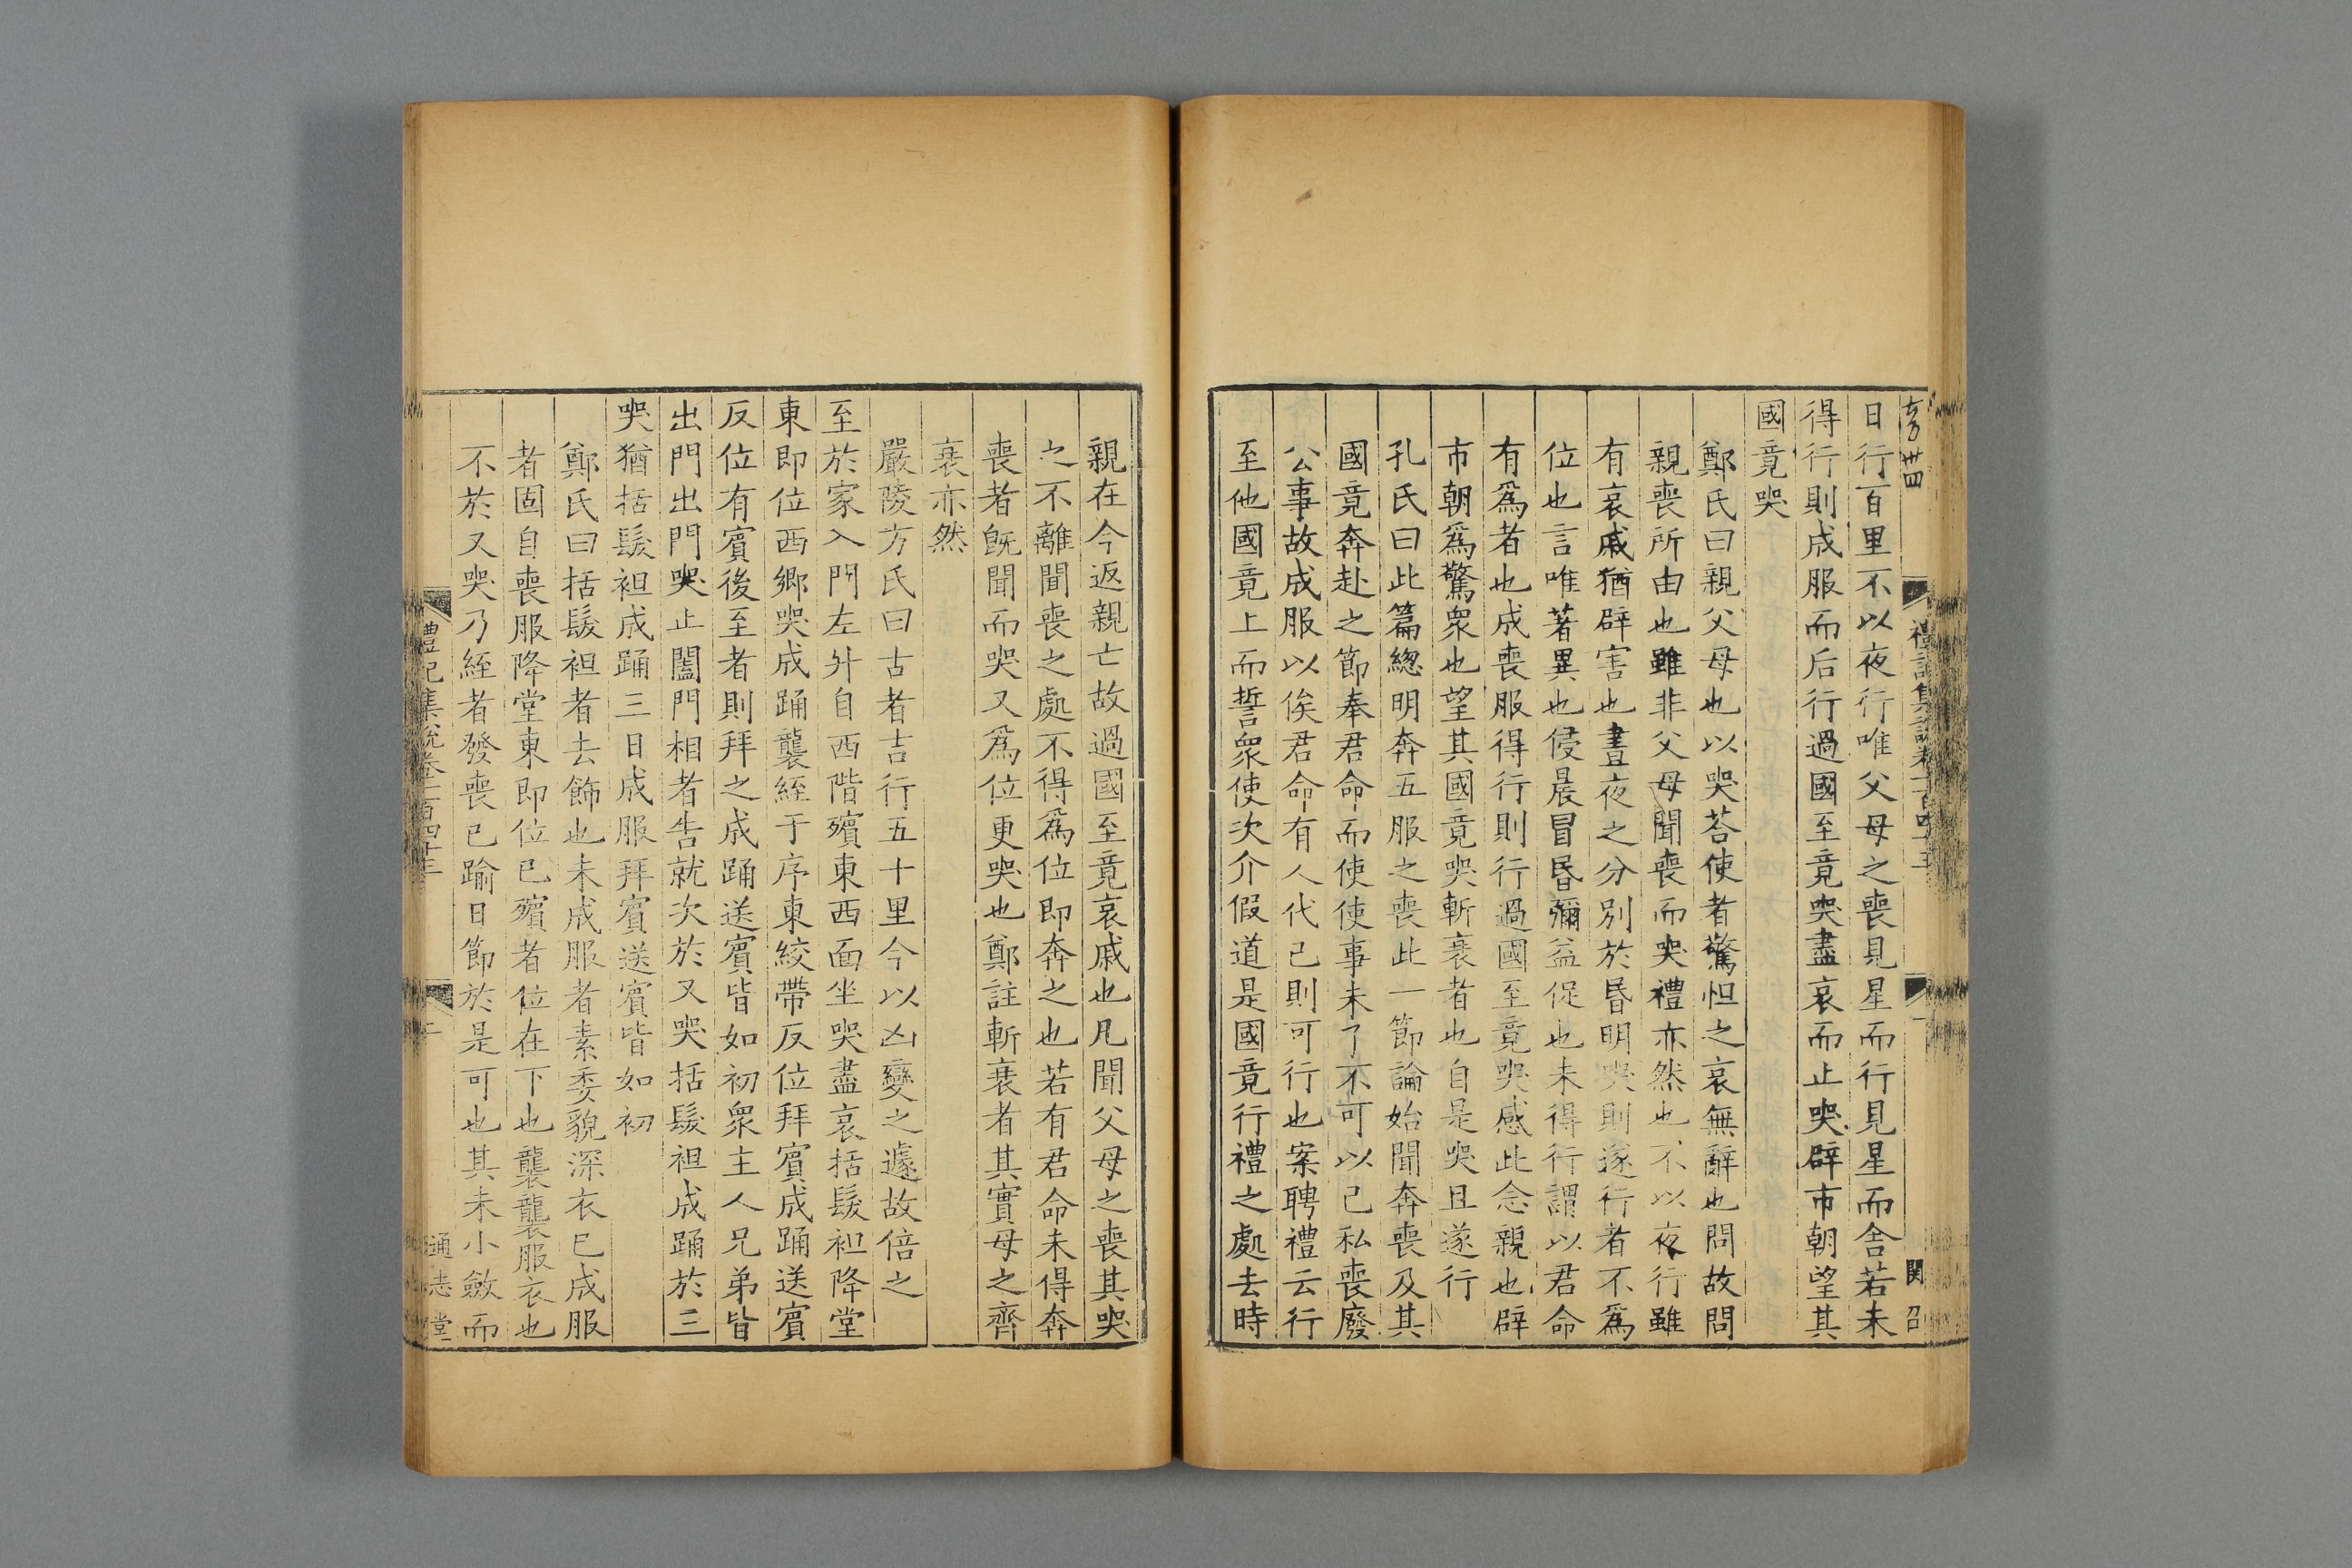 禮記集說卷一百四十三
日行百里不以夜行唯父母之喪見星而行見星而舍若未
得行則成服而后行過國至竟哭盡哀而止哭辟市朝望其
國竟哭
鄭氏曰親父母也以哭荅使者驚怛之哀無辭也問故問
親喪所由也雖非父母聞喪而哭禮亦然也不以夜行雖
有哀戚猶辟害也晝夜之分別於昏明哭則遂行者不爲
位也言唯著異也侵晨冒昏彌益促也未得行謂以君命
有爲者也成喪服得行則行過國至竟哭感此念親也辟
市朝爲驚衆也望其國竟哭斬衰者也自是哭且遂行
孔氏曰此篇緫明奔五服之喪此一節論始聞奔喪及其
國竟奔赴之節奉君命而使使事未了不可以己私喪廢
公事故成服以俟君命有人代己則可行也案聘禮云行
至他國竟上而誓衆使次介假道是國竟行禮之處去時
親在今返親亡故過國至竟哀戚也凡聞父母之喪其哭
之不離聞喪之處不得爲位即奔之也若有君命未得奔
喪者旣聞而哭又爲位更哭也鄭註斬衰者其實母之齊
衰亦然
嚴陵方氏曰古者吉行五十里今以凶變之遽故倍之
至於家入門左升自西階殯東西面坐哭盡哀括髮袒降堂
東即位西鄉哭成踊襲絰于序東絞帶反位拜賓成踊送賓
反位有賓後至者則拜之成踊送賓皆如初衆主人兄弟皆
出門出門哭止闔門相者告就次於又哭括髮袒成踊於三
哭猶括髮袒成踊三日成服拜賓送賓皆如初
鄭氏曰括髮袒者去飾也未成服者素委貌深衣已成服
者固自喪服降堂東即位已殯者位在下也襲襲服衣也
不於又哭乃絰者發喪已踰日節於是可也其未小斂而
禮記集說卷一百四十三
二
通志堂